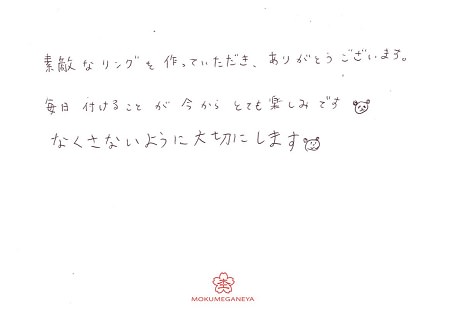 素敵なリングを作っていただき、ありがとうございます。
毎日付けることが今からとても楽しみです
なくさないように大切にします
MOKUMEGANEYA